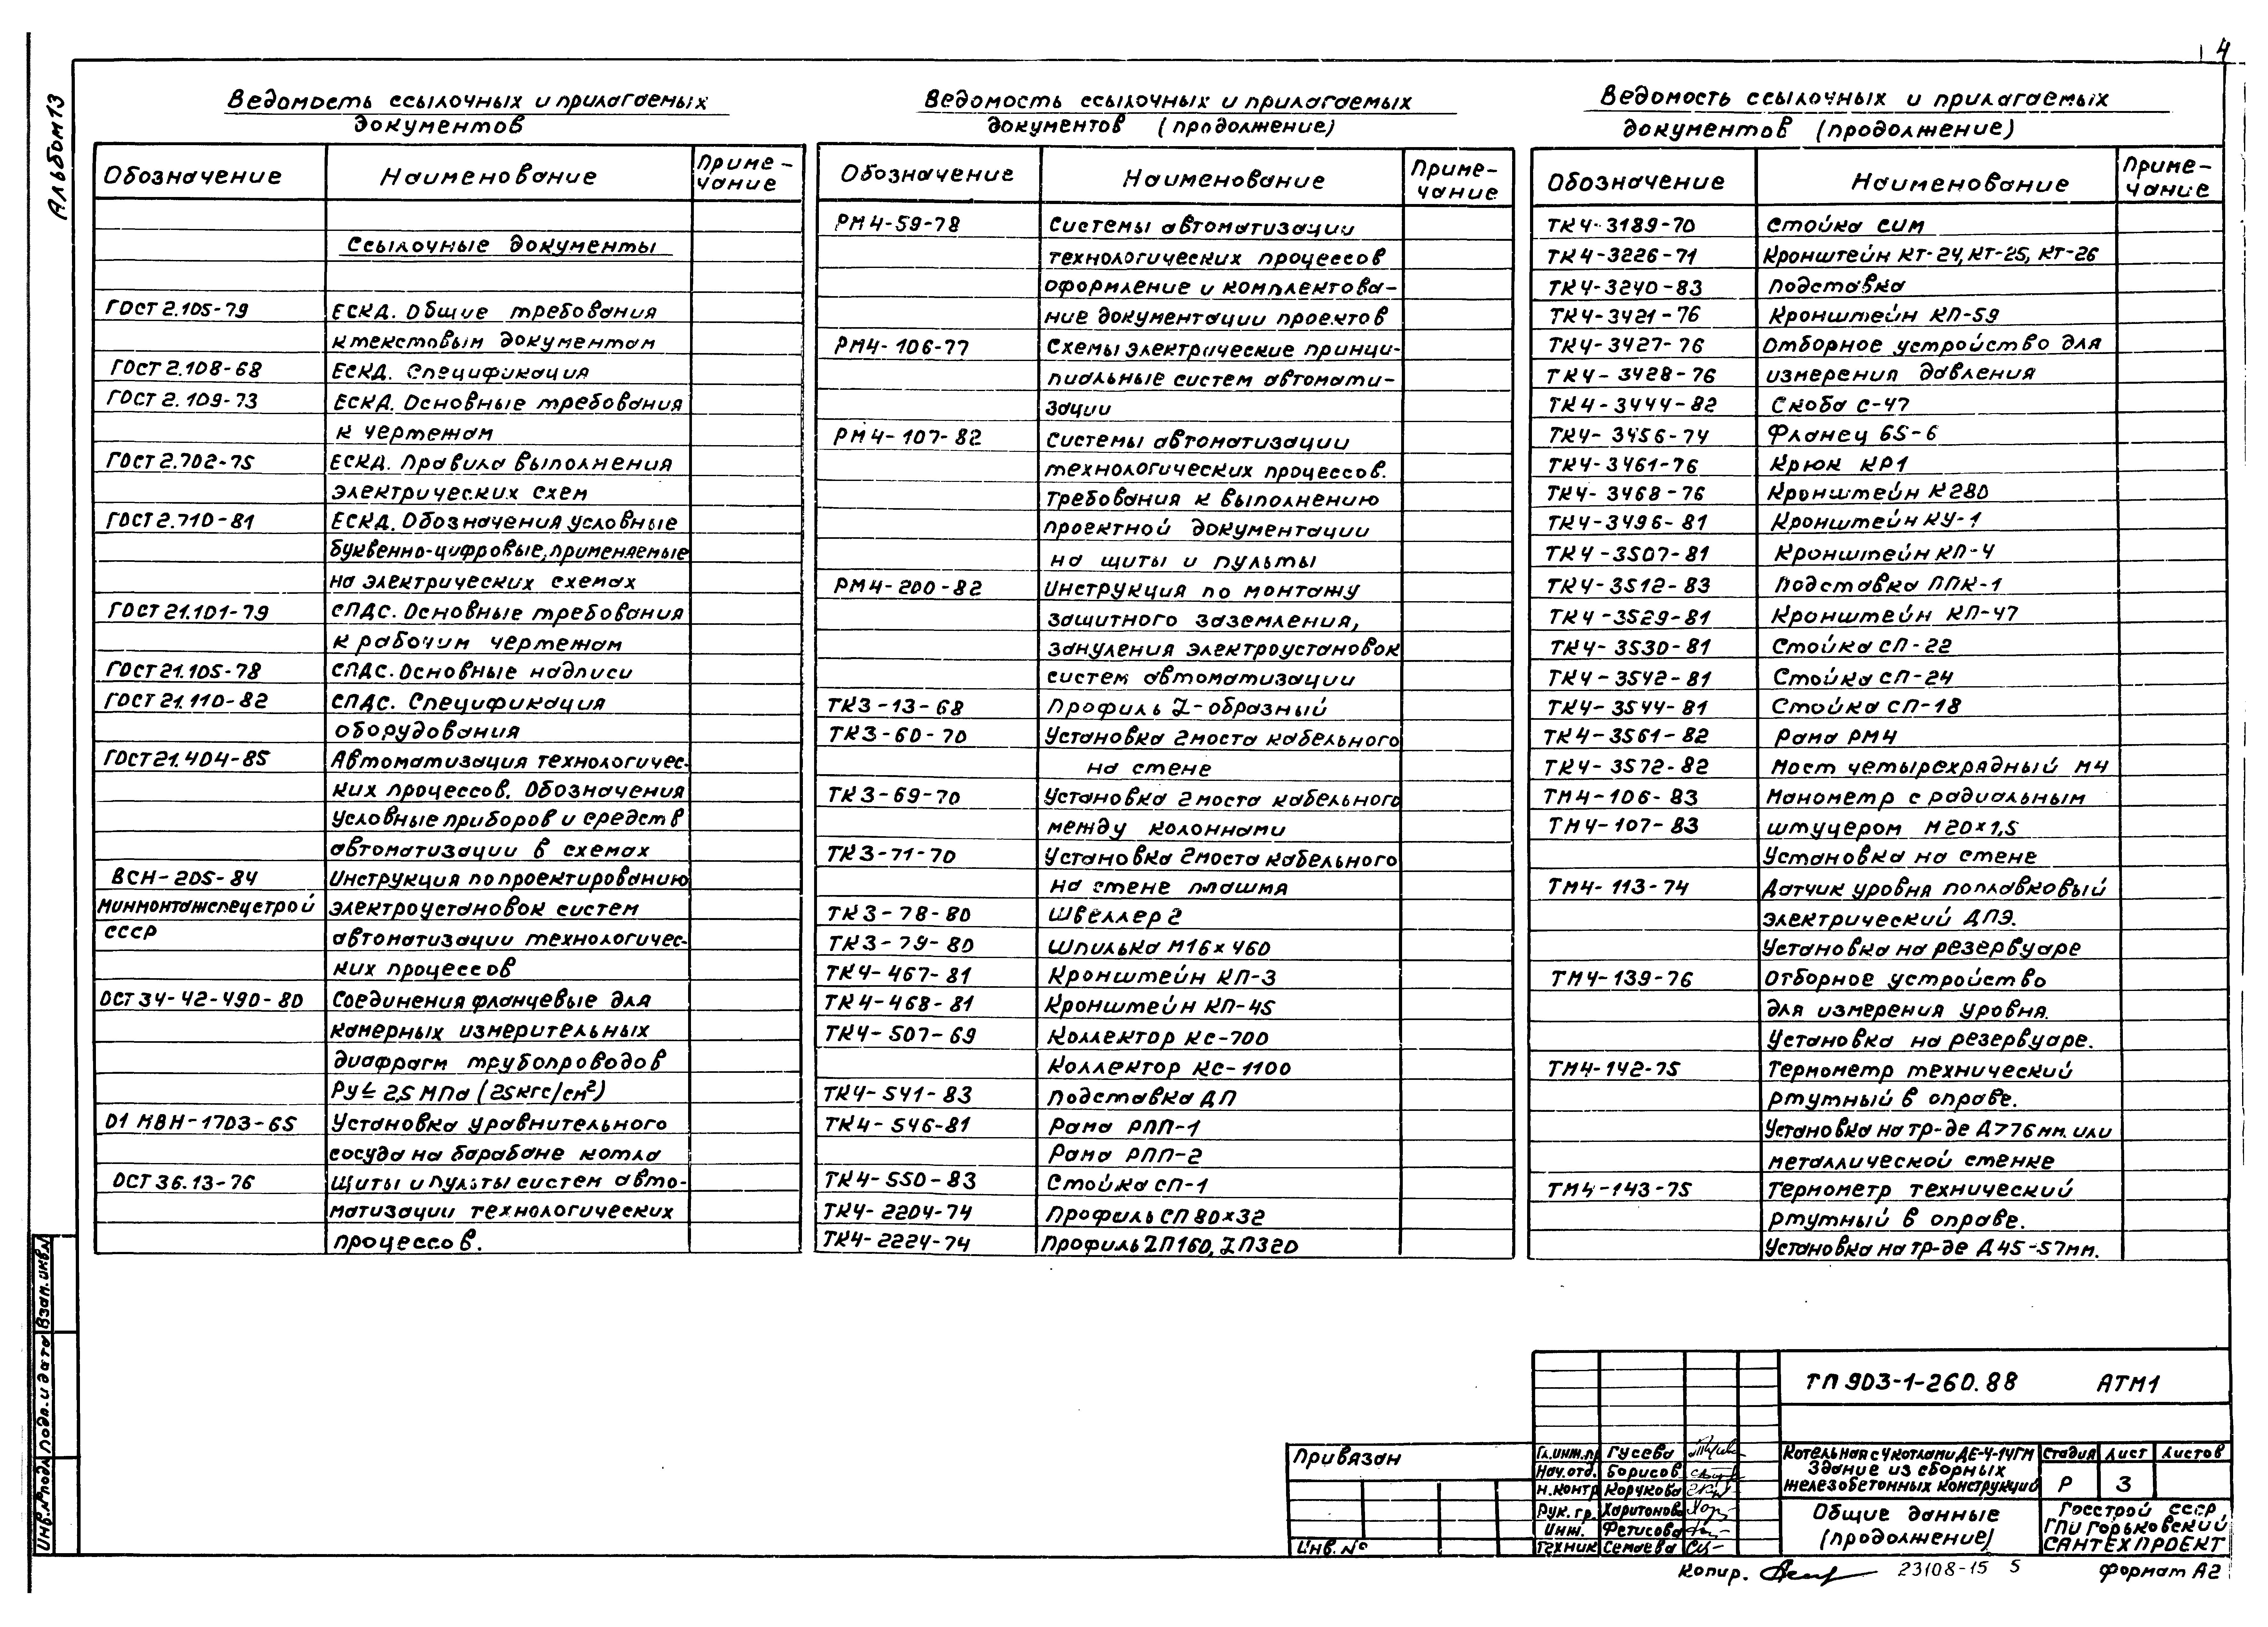 4
Альбом 13
Ведомость ссылочных и прилагаемых
документов
Обозначение Наименование Приме-
чание
Ссылочные документы
ГОСТ 2.105-79 ЕСКД. Общие требования
к текстовым документам
ГОСТ 2.108-68 ЕСКД. Спецификация
ГОСТ 2.109-73 ЕСКД. Основные требования
к чертежам
ГОСТ 2.702-75 ЕСКД. Правила выполнения
электрических схем
ГОСТ 2.710-81 ЕСКД. Обозначения условные
буквенно-цифровые, применяемые
на электрических схемах
ГОСТ 21.101-79 СПДС. Основные требования
к рабочим чертежам
ГОСТ 21.105-78 СПДС. Основные надписи
ГОСТ 21.110-82 СПДС. Спецификация
оборудования
ГОСТ 21.404-85 Автоматизация технологичес-
ких процессов. Обозначения
условные приборов и средств
автоматизации в схемах
ВСН-205-84 Инструкция по проектированию
Минмонтажспецстрой электроустановок систем
СССР автоматизации технологичес-
ких процессов
ОСТ 34-42-490-80 Соединения фланцевые для
камерных измерительных
диафрагм трубопроводов
Ру ≤ 2,5 МПа (25кгс/см²)
01 МВН-1703-65 Установка уравнительного
сосуда на барабане котла
ОСТ 36.13-76 Щиты и пульты систем авто-
матизации технологических
процессов.
Ведомость ссылочных и прилагаемых
документов (продолжение)
Обозначение Наименование Приме-
чание
РМ4-59-78 Системы автоматизации
технологических процессов
оформление и комплектова-
ние документации проектов
РМ4-106-77 Схемы электрические принци-
пиальные систем автомати-
зации
РМ4-107-82 Системы автоматизации
технологических процессов.
Требования к выполнению
проектной документации
на щиты и пульты
РМ4-200-82 Инструкция по монтажу
защитного заземления,
зануления электроустановок
систем автоматизации
ТК3-13-68 Профиль Z-образный
ТК3-60-70 Установка 2моста кабельного
на стене
ТК3-69-70 Установка 2моста кабельного
между колоннами
ТК3-71-70 Установка 2моста кабельного
на стене плашмя
ТК3-78-80 Швеллер 2
ТК3-79-80 Шпилька М16×460
ТК4-467-81 Кронштейн КП-3
ТК4-468-81 Кронштейн КП-45
ТК4-507-69 Коллектор КС-700
Коллектор КС-1100
ТК4-541-83 Подставка ДП
ТК4-546-81 Рама РПП-1
Рама РПП-2
ТК4-550-83 Стойка СП-1
ТК4-2204-74 Профиль СП 80×32
ТК4-2224-74 Профиль ZП160, ZП320
Ведомость ссылочных и прилагаемых
документов (продолжение)
Обозначение Наименование Приме-
чание
ТК4-3189-70 Стойка СИМ
ТК4-3226-71 Кронштейн КТ-24, КТ-25, КТ-26
ТК4-3240-83 Подставка
ТК4-3421-76 Кронштейн КП-59
ТК4-3427-76 Отборное устройство для
ТК4-3428-76 измерения давления
ТК4-3444-82 Скоба С-47
ТК4-3456-74 Фланец 65-6
ТК4-3461-76 Крюк КР1
ТК4-3468-76 Кронштейн К280
ТК4-3496-81 Кронштейн КУ-1
ТК4-3507-81 Кронштейн КП-4
ТК4-3512-83 Подставка ППК-1
ТК4-3529-81 Кронштейн КП-47
ТК4-3530-81 Стойка СП-22
ТК4-3542-81 Стойка СП-24
ТК4-3544-81 Стойка СП-18
ТК4-3561-82 Рама РМ4
ТК4-3572-82 Мост четырехрядный М4
ТМ4-106-83 Манометр с радиальным
ТМ4-107-83 штуцером М20×1,5
Установка на стене
ТМ4-113-74 Датчик уровня поплавковый
электрический ДПЭ.
Установка на резервуаре
ТМ4-139-76 Отборное устройство
для измерения уровня.
Установка на резервуаре.
ТМ4-142-75 Термометр технический
ртутный в оправе.
Установка на тр-де Д>76мм. или
металлической стенке
ТМ4-143-75 Термометр технический
ртутный в оправе.
Установка на тр-де Д 45-57мм.
Инв. № подл. Подп. и дата Взам. инв. №
Привязан
Инв. №
Гл. инж. пр Гусева
Нач. отд. Борисов
Н. контр Корчкова
Рук. гр. Харитонова
Инж. Фетисова
Техник Семаева
ТП 903-1-260.88 АТМ1
Котельная с 4 котлами ДЕ-4-14ГМ
Здание из сборных
железобетонных конструкций
Стадия Лист Листов
Р 3
Общие данные
(продолжение)
Госстрой СССР
ГПИ Горьковский
САНТЕХПРОЕКТ
Копир. 23108-15 5 Формат А2